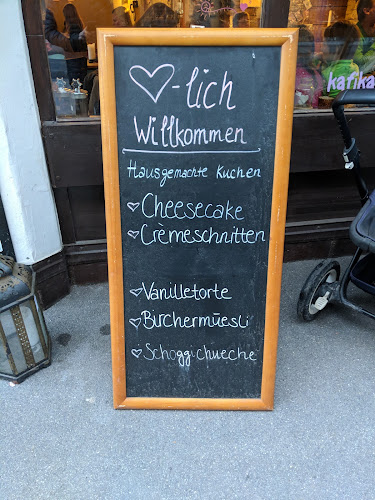 ♡-lich
Willkommen
Hausgemachte Kuchen
♡Cheesecake
♡Crèmeschnitten
♡Vanilletorte
♡Birchermüesli
♡Schoggichueche
kafika